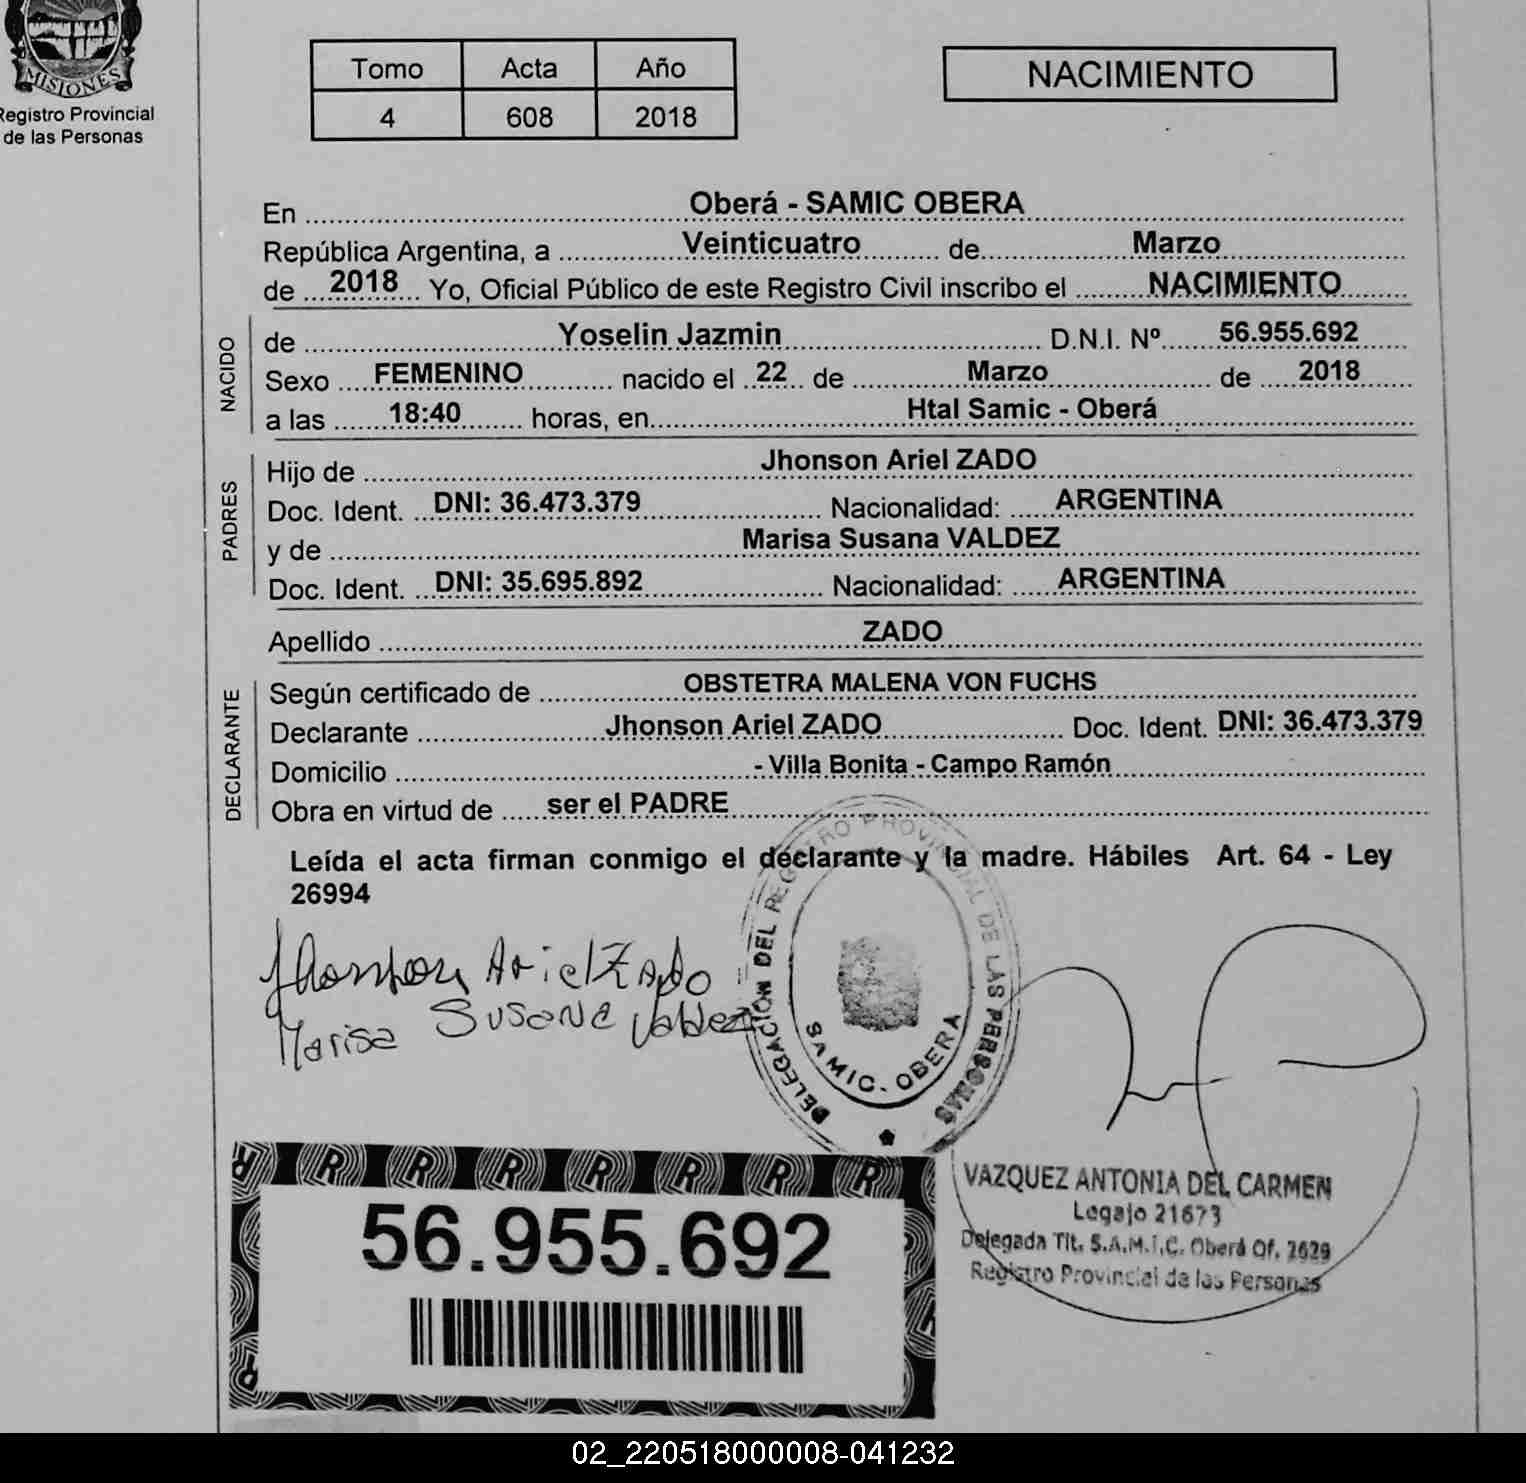 MISIONES
Registro Provincial
de las Personas
Tomo Acta Año
4 608 2018
NACIMIENTO
En Oberá - SAMIC OBERA
República Argentina, a Veinticuatro de Marzo
de 2018 Yo, Oficial Público de este Registro Civil inscribo el NACIMIENTO
NACIDO
de Yoselin Jazmin D.N.I. Nº 56.955.692
Sexo FEMENINO nacido el 22 de Marzo de 2018
a las 18:40 horas, en Htal Samic - Oberá
PADRES
Hijo de Jhonson Ariel ZADO
Doc. Ident. DNI: 36.473.379 Nacionalidad: ARGENTINA
y de Marisa Susana VALDEZ
Doc. Ident. DNI: 35.695.892 Nacionalidad: ARGENTINA
Apellido ZADO
DECLARANTE
Según certificado de OBSTETRA MALENA VON FUCHS
Declarante Jhonson Ariel ZADO Doc. Ident. DNI: 36.473.379
Domicilio - Villa Bonita - Campo Ramón
Obra en virtud de ser el PADRE
Leída el acta firman conmigo el declarante y la madre. Hábiles Art. 64 - Ley
26994
Jhonson Ariel Zado
Marisa Susana Valdez
DELEGACIÓN DEL REGISTRO PROVINCIAL DE LAS PERSONAS
SAMIC. OBERA
VAZQUEZ ANTONIA DEL CARMEN
Legajo 21673
Delegada Tit. S.A.M.I.C. Oberá Of. 2629
Registro Provincial de las Personas
R R R R R R R
56.955.692
02_220518000008-041232